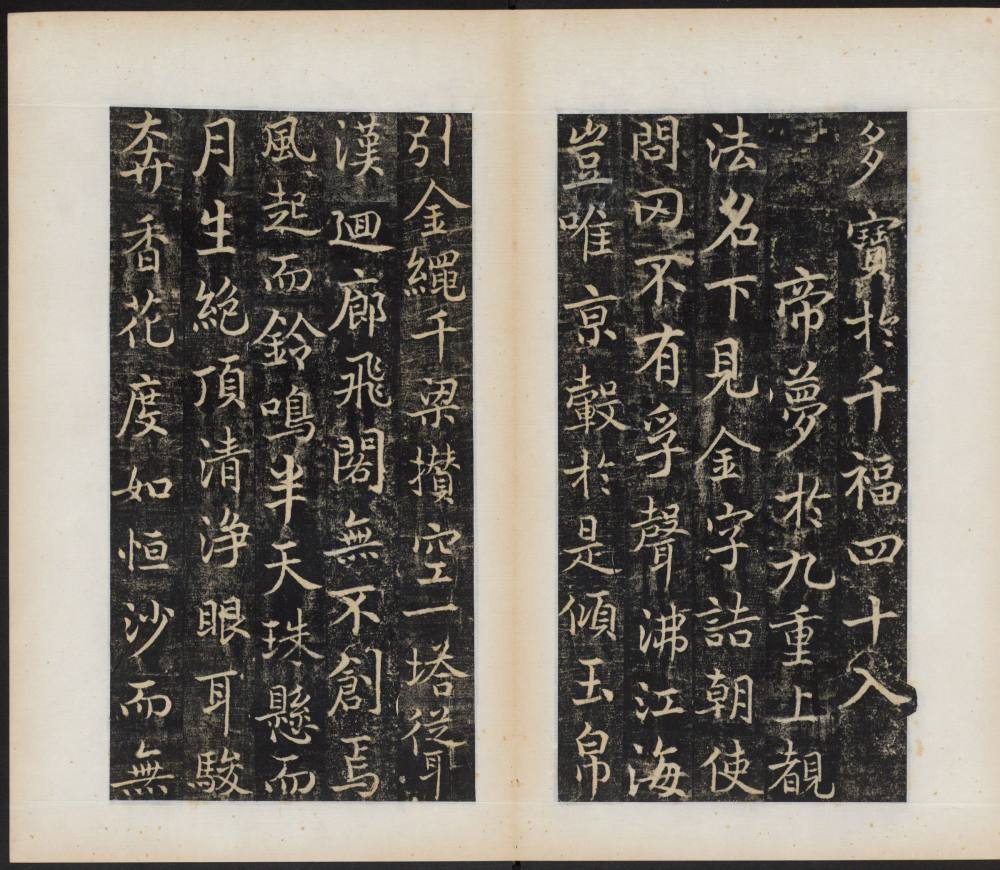 多寶於千福四十入
帝夢於九重上覩
法名下見金字詰朝使
問罔不有孚聲沸江海
豈唯京轂於是傾玉帛
引金繩千梁攢空一塔從耳
漢迴廊飛閣無不創焉
風起而鈴鳴半天珠懸而
月生絶頂清淨眼耳駿
奔香花度如恒沙而無